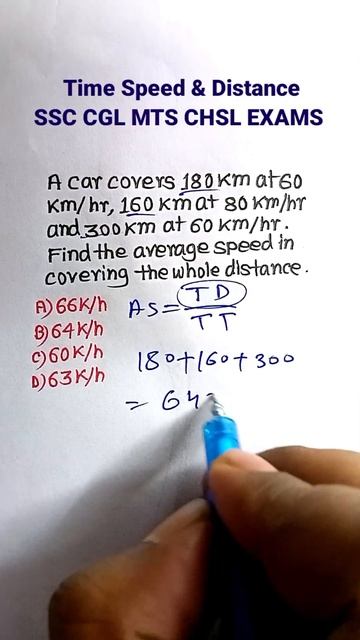 Time Speed & Distance
SSC CGL MTS CHSL EXAMS
A car covers 180 Km at 60
Km/hr, 160 Km at 80 Km/hr
and 300 Km at 60 Km/hr.
Find the average speed in
covering the whole distance.
A) 66 K/h
B) 64 K/h
C) 60 K/h
D) 63 K/h
AS = TD
TT
180+160+300
= 64